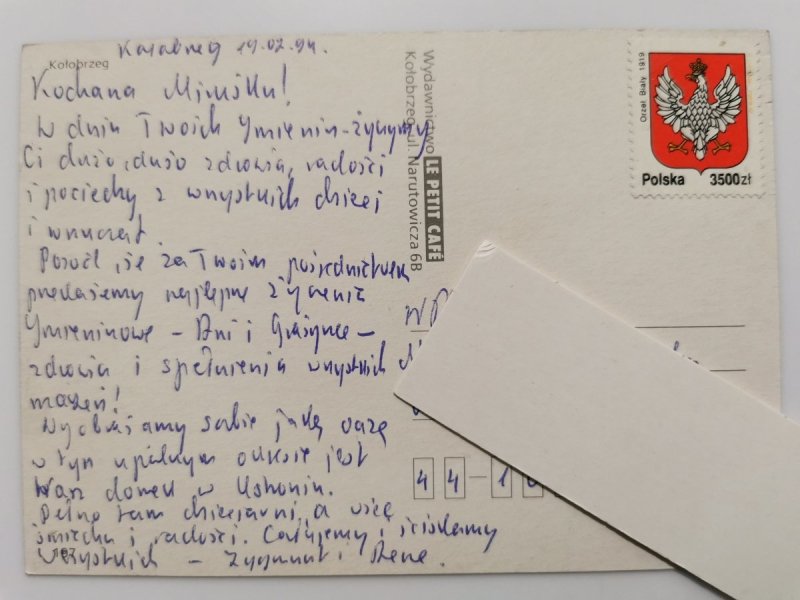 Kołobrzeg 19.07.94.
Kołobrzeg
Kochana Mimiśku!
W dniu Twoich Ymienin - życzymy
Ci dużo, dużo zdrowia, radości
i pociechy z wszystkich dzieci
i wnucząt.
Pozól, że za Twoim pośrednictwem
przekażemy najlepsze życzenia
Ymieninowe - Ani i Grażynce -
zdrowia i spełnienia wszystkich
marzeń!
Wyobrażamy sobie jaką oazą
w tym upalnym okresie jest
Wasz domek w Ustroniu.
Pełno tam dzieciarni, a więc
śmiechu i radości. Całujemy i ściskamy
Wszystkich - Zygmunt i Irena.
107
Wydawnictwo LE PETIT CAFÉ
Kołobrzeg, ul. Narutowicza 6B
Orzeł Biały 1919
Polska 3500zł
44-10